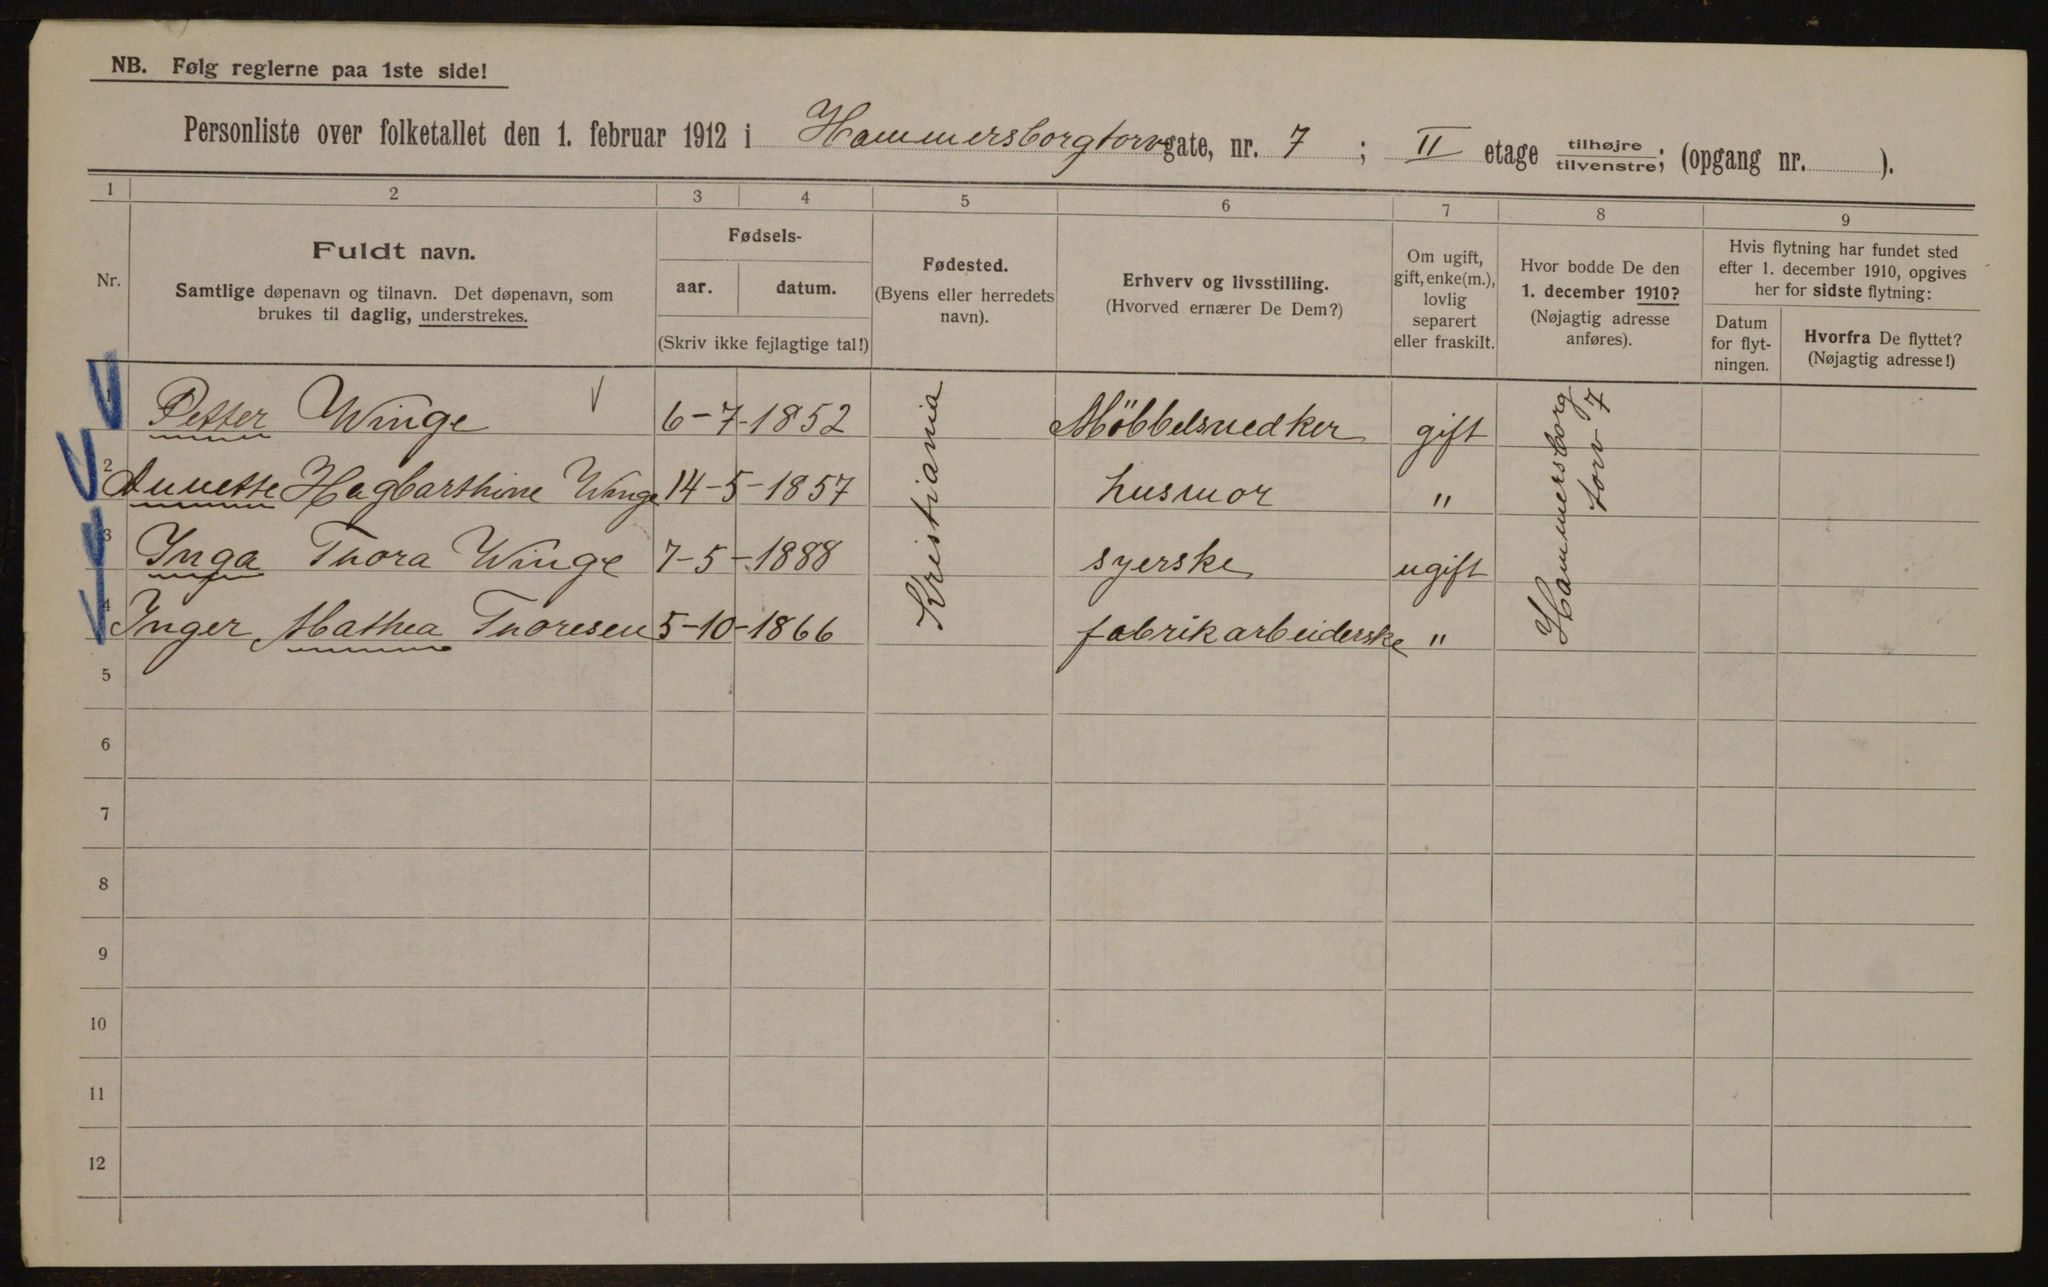 NB. Følg reglerne paa 1ste side!
Personliste over folketallet den 1. februar 1912 i Hammersborgtorv gate, nr. 7 ; II etage tilhøjre/tilvenstre; (opgang nr. ).
1 2 3 4 5 6 7 8 9
Nr.
Fuldt navn.
Samtlige døpenavn og tilnavn. Det døpenavn, som
brukes til daglig, understrekes.
Fødsels-
aar. datum.
(Skriv ikke fejlagtige tal!)
Fødested.
(Byens eller herredets
navn).
Erhverv og livsstilling.
(Hvorved ernærer De Dem?)
Om ugift,
gift, enke(m.),
lovlig
separert
eller fraskilt.
Hvor bodde De den
1. december 1910?
(Nøjagtig adresse
anføres).
Hvis flytning har fundet sted
efter 1. december 1910, opgives
her for sidste flytning:
Datum
for flyt-
ningen.
Hvorfra De flyttet?
(Nøjagtig adresse!)
1 Petter Winge 6-7-1852 Møbbelsnedker gift
2 Annette Hagbarthine Winge 14-5-1857 husmor "
3 Inga Thora Winge 7-5-1888 syerske ugift
4 Inger Mathea Thoresen 5-10-1866 fabrikarbeiderske "
Kristiania
Hammersborg
torv 7
5
6
7
8
9
10
11
12